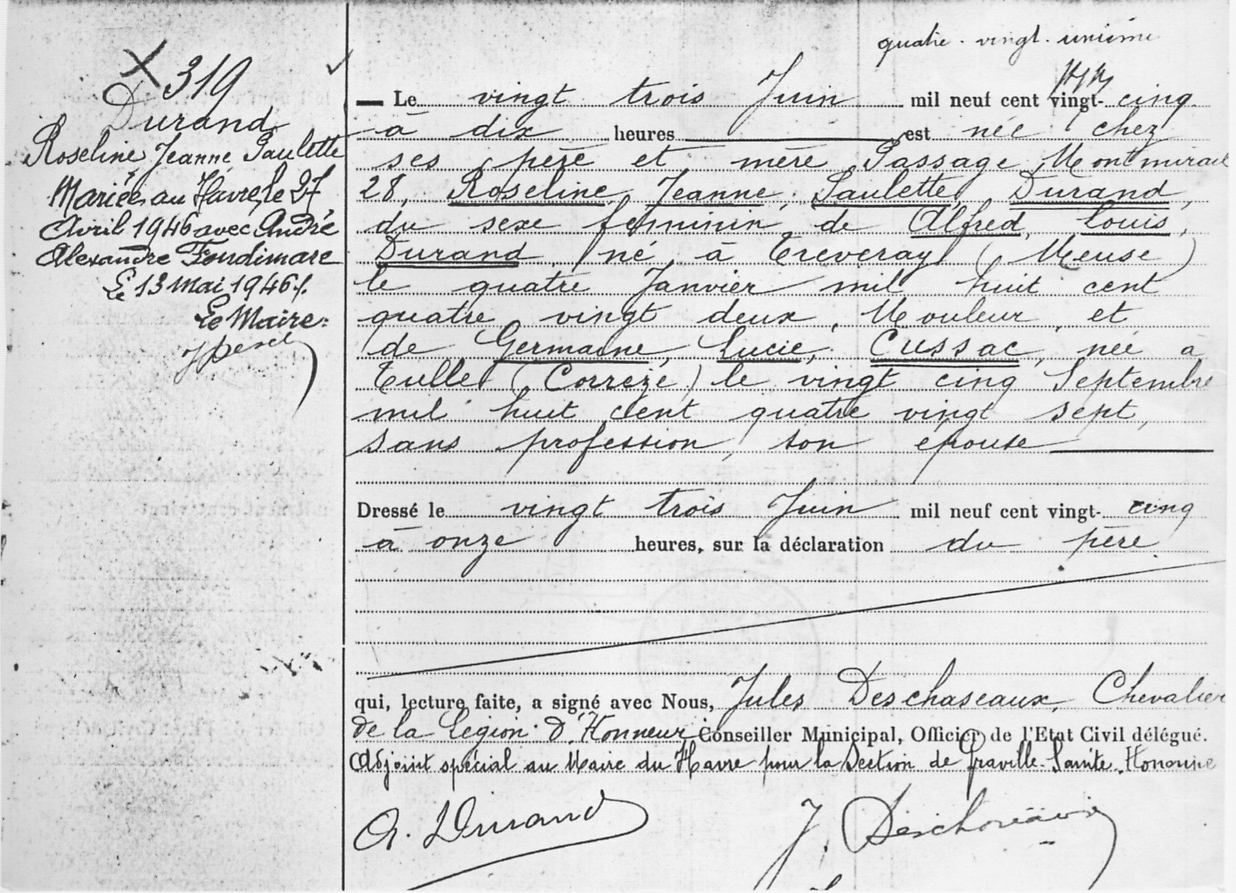 quatre-vingt-unième
319
Durand
Roseline Jeanne Paulette
Mariée au Havre le 27
Avril 1946 avec André
Alexandre Fondimare
Le 13 Mai 1946.
Le Maire:
Le vingt trois Juin mil neuf cent vingt-cinq
à dix heures est née chez
ses père et mère Passage Montmirail
28, Roseline, Jeanne, Paulette, Durand,
du sexe féminin, de Alfred, Louis,
Durand, né à Tréveray (Meuse)
le quatre Janvier mil huit cent
quatre vingt deux, Mouleur, et
de Germaine, Lucie, Cussac, née à
Tulle (Corrèze) le vingt cinq Septembre
mil huit cent quatre vingt sept,
sans profession, son épouse
Dressé le vingt trois Juin mil neuf cent vingt-cinq
à onze heures, sur la déclaration du père.
qui, lecture faite, a signé avec Nous, Jules Deschaseaux, Chevalier
de la Légion d'Honneur Conseiller Municipal, Officier de l'Etat Civil délégué.
Adjoint spécial au Maire du Havre pour la Section de Graville-Sainte-Honorine
A. Durand
J. Deschaseaux